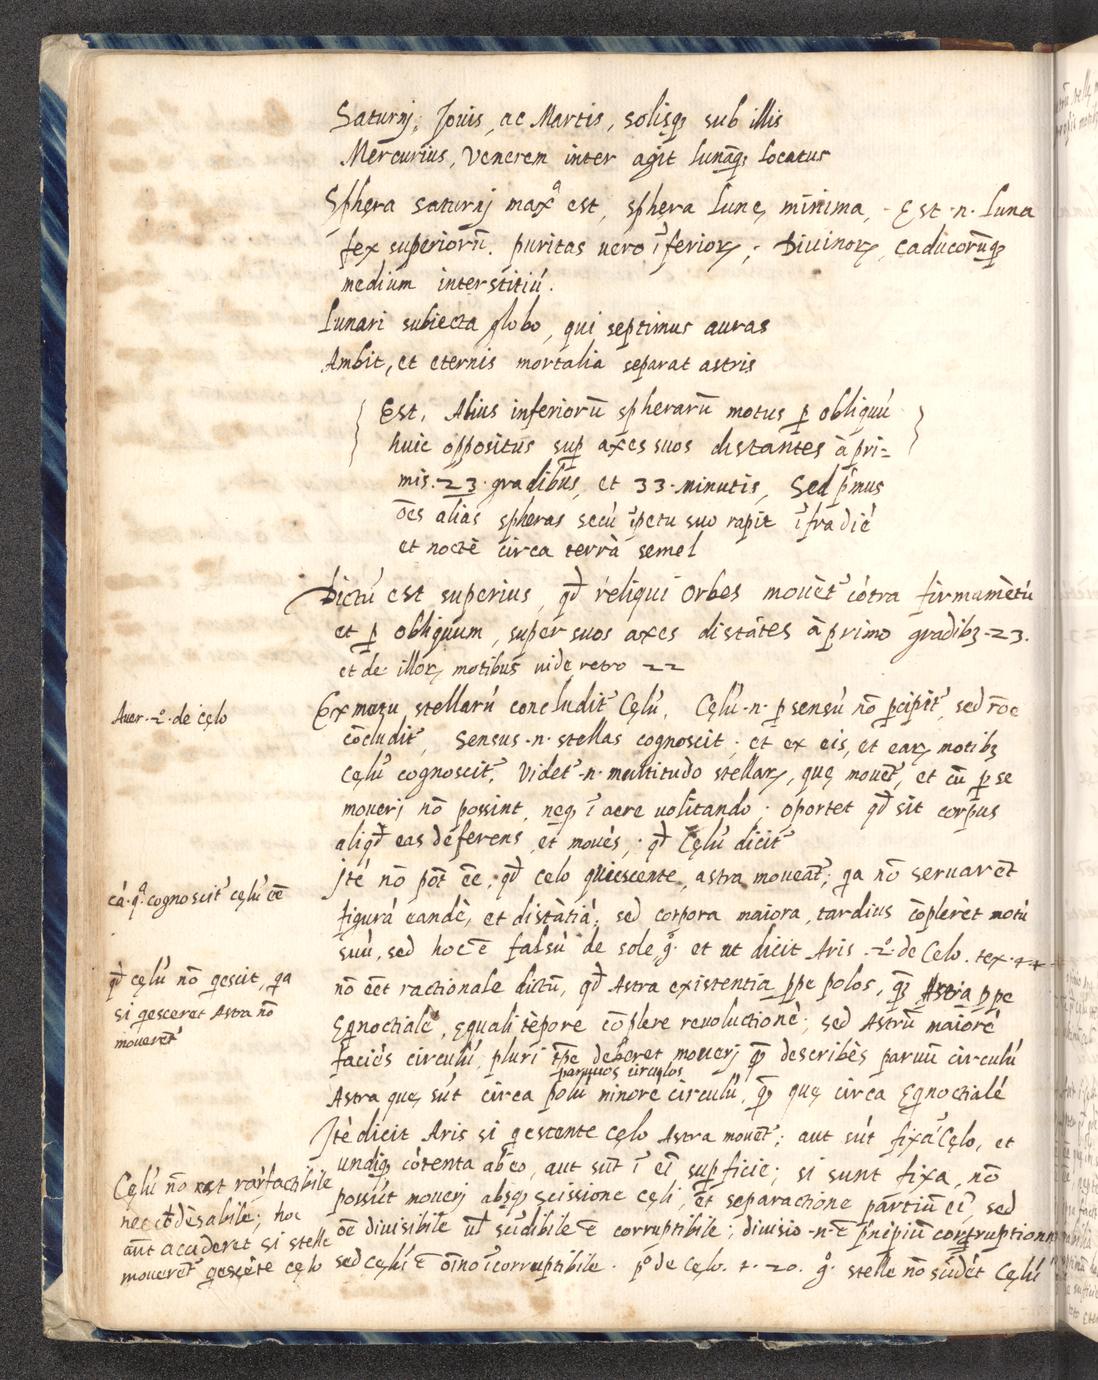 Saturnj, Jouis, ac Martis, solisq; sub illis
Mercurius, Venerem inter agit lunāq; locatus
Sphęra Saturnj maxᵃ est, sphęra Lunę minima, Est .n. Luna
fex superiorū. puritas uero īferioꝝ; Diuinoꝝ, caducorūq;
medium interstitiū.
Lunari subiecta globo, qui septimus auras
Ambit, et eternis mortalia separat astris
Est, Alius inferiorū spherarū motus ꝑ obliquū
huic oppositus sup axes suos distantes à pri=
mis. 23. gradibus, et 33. minutis, Sed p̄mus
ōēs alias spheras secū īpetu suo rapit īfra diē
et noctē circa terrā semel
Dictū est superius, qđ reliqui orbes mouēt᷑ cōtra firmamētū
et ꝑ obliquum, super suos axes distātes à primo gradibȝ 23.
et de illoꝝ motibus uide retro 22
Auer. 2º. de cęlo
Ex motu stellarū concludit᷑ Cęlū. Cęlū .n. ꝑ sensū nō ꝑcipit᷑, sed rōe
cōcludit᷑, Sensus .n. stellas cognoscit; et ex eis, et eaꝝ motibȝ
Cęlū cognoscit᷑. Videt᷑ .n. multitudo stellaꝝ, quę mouēt᷑, et cū ꝑ se
mouerj nō possint, neq; ī aere uolitando; oportet qđ sit corpus
aliqđ eas deferens, et mouēs,; qđ Cęlū dicit᷑
cā. qᵃ. cognoscit᷑ cęlū ēē
Jtē nō pōt ēē, qđ celo quiescente, astra moueāt᷑; qa nō seruarēt
figurā eandē, et distātiā; sed corpora maiora, tardius cōplerēt motū
suū, sed hoc ē falsū de sole, gº. et ut dicit Aris .2º. de Celo. tex. 44
qđ cęlū nō qescit, qa
si qesceret Astra nō
mouerēt᷑
nō ēēt ractionale dictū, qđ Astra existentia ꝓpe polos, q; Astra ꝓpe
Eqnoctialē, equali tēpore cōplere reuolutionē; sed Astrū maiorē
faciēs circulū, pluri tꝑe deberet mouerj q̄; describēs paruū circulū
paruuos circulos
Astra quę sūt circa polū minorē circulū, q̄; quę circa Eqnoctialē
Jtē dicit Aris si qescente cęlo Astra mouēt᷑; aut sūt fixa Cęlo, et
undiq; cōtenta ab eo, aut sūt ī ei᷑ supficie; si sunt fixa, nō
Cęlū nō est rarefactibile
nec cōdēsabile; hoc
aūt accideret si stelle
mouerēt᷑ qescēte cęlo
possūt mouerj absq; scissione cęli, et separactione partiū ei᷑, sed
oē diuisibile ul scīdibile ē corruptibile; diuisio .n. ē p̄ncipiū corruptionis
sed cęlū ē oīno īcorruptibile. pº de Cęlo. t. 20. gº. stelle nō scīdēt Cęlū